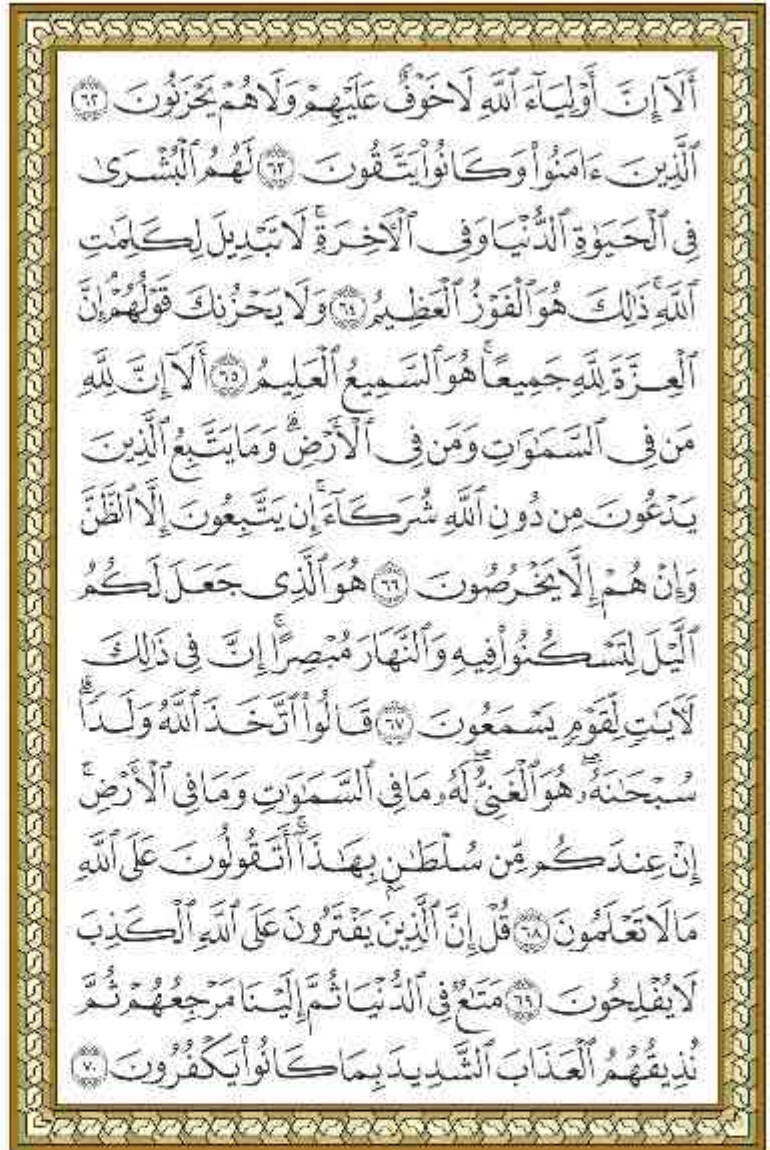 أَلَآ إِنَّ أَوْلِيَآءَ ٱللَّهِ لَا خَوْفٌ عَلَيْهِمْ وَلَا هُمْ يَحْزَنُونَ ٦٢
ٱلَّذِينَ ءَامَنُوا۟ وَكَانُوا۟ يَتَّقُونَ ٦٣ لَهُمُ ٱلْبُشْرَىٰ
فِى ٱلْحَيَوٰةِ ٱلدُّنْيَا وَفِى ٱلْءَاخِرَةِ ۚ لَا تَبْدِيلَ لِكَلِمَٰتِ
ٱللَّهِ ۚ ذَٰلِكَ هُوَ ٱلْفَوْزُ ٱلْعَظِيمُ ٦٤ وَلَا يَحْزُنكَ قَوْلُهُمْ ۘ إِنَّ
ٱلْعِزَّةَ لِلَّهِ جَمِيعًا ۚ هُوَ ٱلسَّمِيعُ ٱلْعَلِيمُ ٦٥ أَلَآ إِنَّ لِلَّهِ
مَن فِى ٱلسَّمَٰوَٰتِ وَمَن فِى ٱلْأَرْضِ ۗ وَمَا يَتَّبِعُ ٱلَّذِينَ
يَدْعُونَ مِن دُونِ ٱللَّهِ شُرَكَآءَ ۚ إِن يَتَّبِعُونَ إِلَّا ٱلظَّنَّ
وَإِنْ هُمْ إِلَّا يَخْرُصُونَ ٦٦ هُوَ ٱلَّذِى جَعَلَ لَكُمُ
ٱلَّيْلَ لِتَسْكُنُوا۟ فِيهِ وَٱلنَّهَارَ مُبْصِرًا ۚ إِنَّ فِى ذَٰلِكَ
لَءَايَٰتٍ لِّقَوْمٍ يَسْمَعُونَ ٦٧ قَالُوا۟ ٱتَّخَذَ ٱللَّهُ وَلَدًا ۗ
سُبْحَٰنَهُۥ ۖ هُوَ ٱلْغَنِىُّ ۖ لَهُۥ مَا فِى ٱلسَّمَٰوَٰتِ وَمَا فِى ٱلْأَرْضِ ۚ
إِنْ عِندَكُم مِّن سُلْطَٰنٍۭ بِهَٰذَآ ۚ أَتَقُولُونَ عَلَى ٱللَّهِ
مَا لَا تَعْلَمُونَ ٦٨ قُلْ إِنَّ ٱلَّذِينَ يَفْتَرُونَ عَلَى ٱللَّهِ ٱلْكَذِبَ
لَا يُفْلِحُونَ ٦٩ مَتَٰعٌ فِى ٱلدُّنْيَا ثُمَّ إِلَيْنَا مَرْجِعُهُمْ ثُمَّ
نُذِيقُهُمُ ٱلْعَذَابَ ٱلشَّدِيدَ بِمَا كَانُوا۟ يَكْفُرُونَ ٧٠